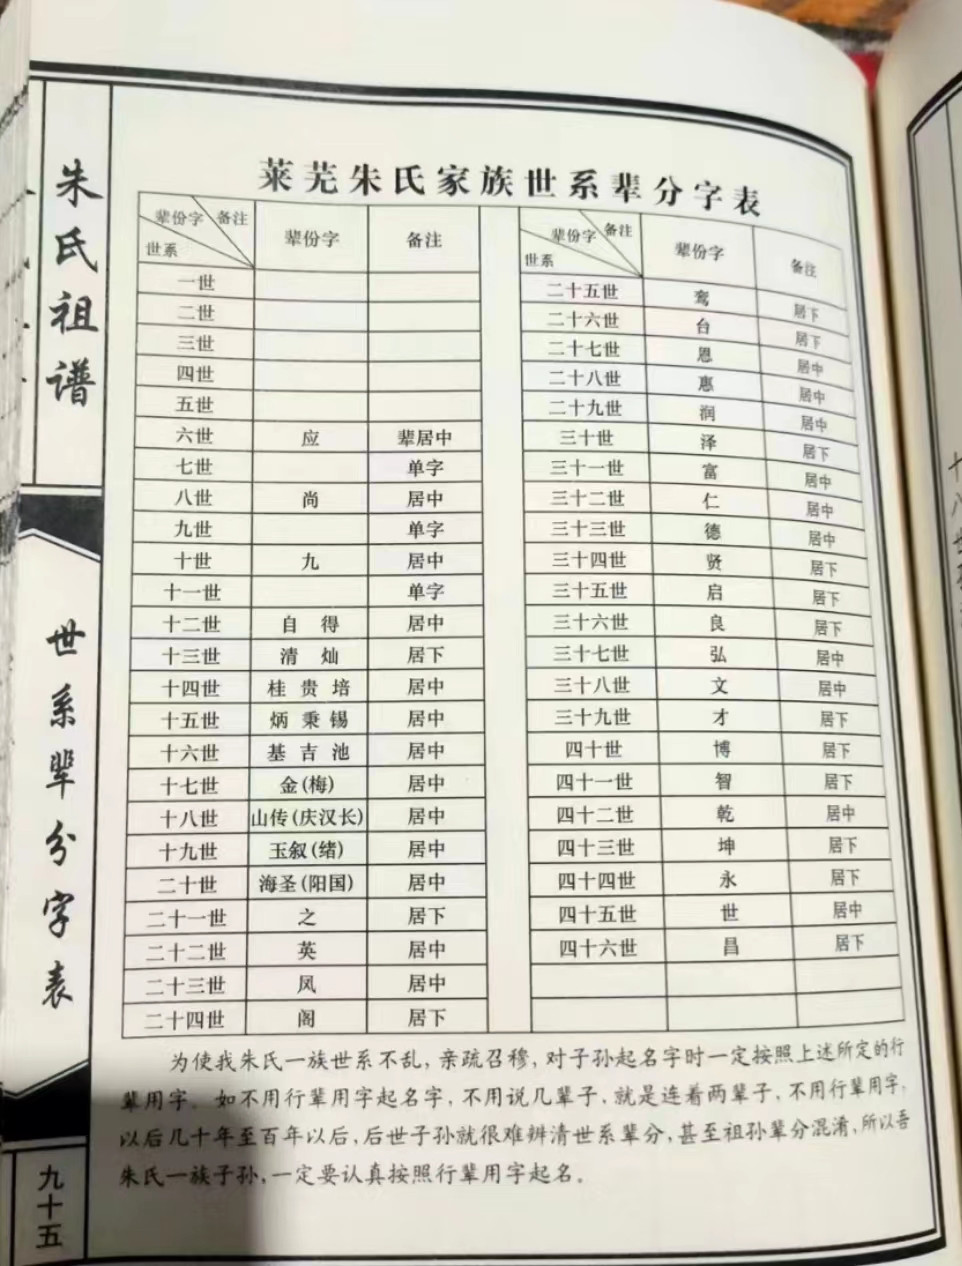 莱芜朱氏家族世系辈分字表
朱氏祖谱
世系辈分字表
九十五
辈份字 备注 世系 辈份字 备注
一世
二世
三世
四世
五世
六世 应 辈居中
七世 单字
八世 尚 居中
九世 单字
十世 九 居中
十一世 单字
十二世 自 得 居中
十三世 清 灿 居下
十四世 桂 贵 培 居中
十五世 炳 秉 锡 居中
十六世 基 吉 池 居中
十七世 金(梅) 居中
十八世 山传(庆汉长) 居中
十九世 玉叙(绪) 居中
二十世 海圣(阳国) 居中
二十一世 之 居下
二十二世 英 居中
二十三世 凤 居中
二十四世 阁 居下
辈份字 备注 世系 辈份字 备注
二十五世 鸾 居下
二十六世 台 居下
二十七世 恩 居中
二十八世 惠 居中
二十九世 润 居中
三十世 泽 居下
三十一世 富 居中
三十二世 仁 居中
三十三世 德 居中
三十四世 贤 居下
三十五世 启 居下
三十六世 良 居下
三十七世 弘 居中
三十八世 文 居中
三十九世 才 居下
四十世 博 居下
四十一世 智 居下
四十二世 乾 居中
四十三世 坤 居下
四十四世 永 居下
四十五世 世 居中
四十六世 昌 居下
为使我朱氏一族世系不乱，亲疏召穆，对子孙起名字时一定按照上述所定的行
辈用字。如不用行辈用字起名字，不用说几辈子，就是连着两辈子，不用行辈用字，
以后几十年至百年以后，后世子孙就很难辨清世系辈分，甚至祖孙辈分混淆，所以吾
朱氏一族子孙，一定要认真按照行辈用字起名。